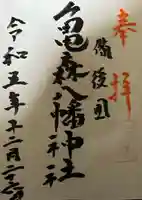 奉拝
備後国
亀森八幡神社
令和五年十二月二十六日